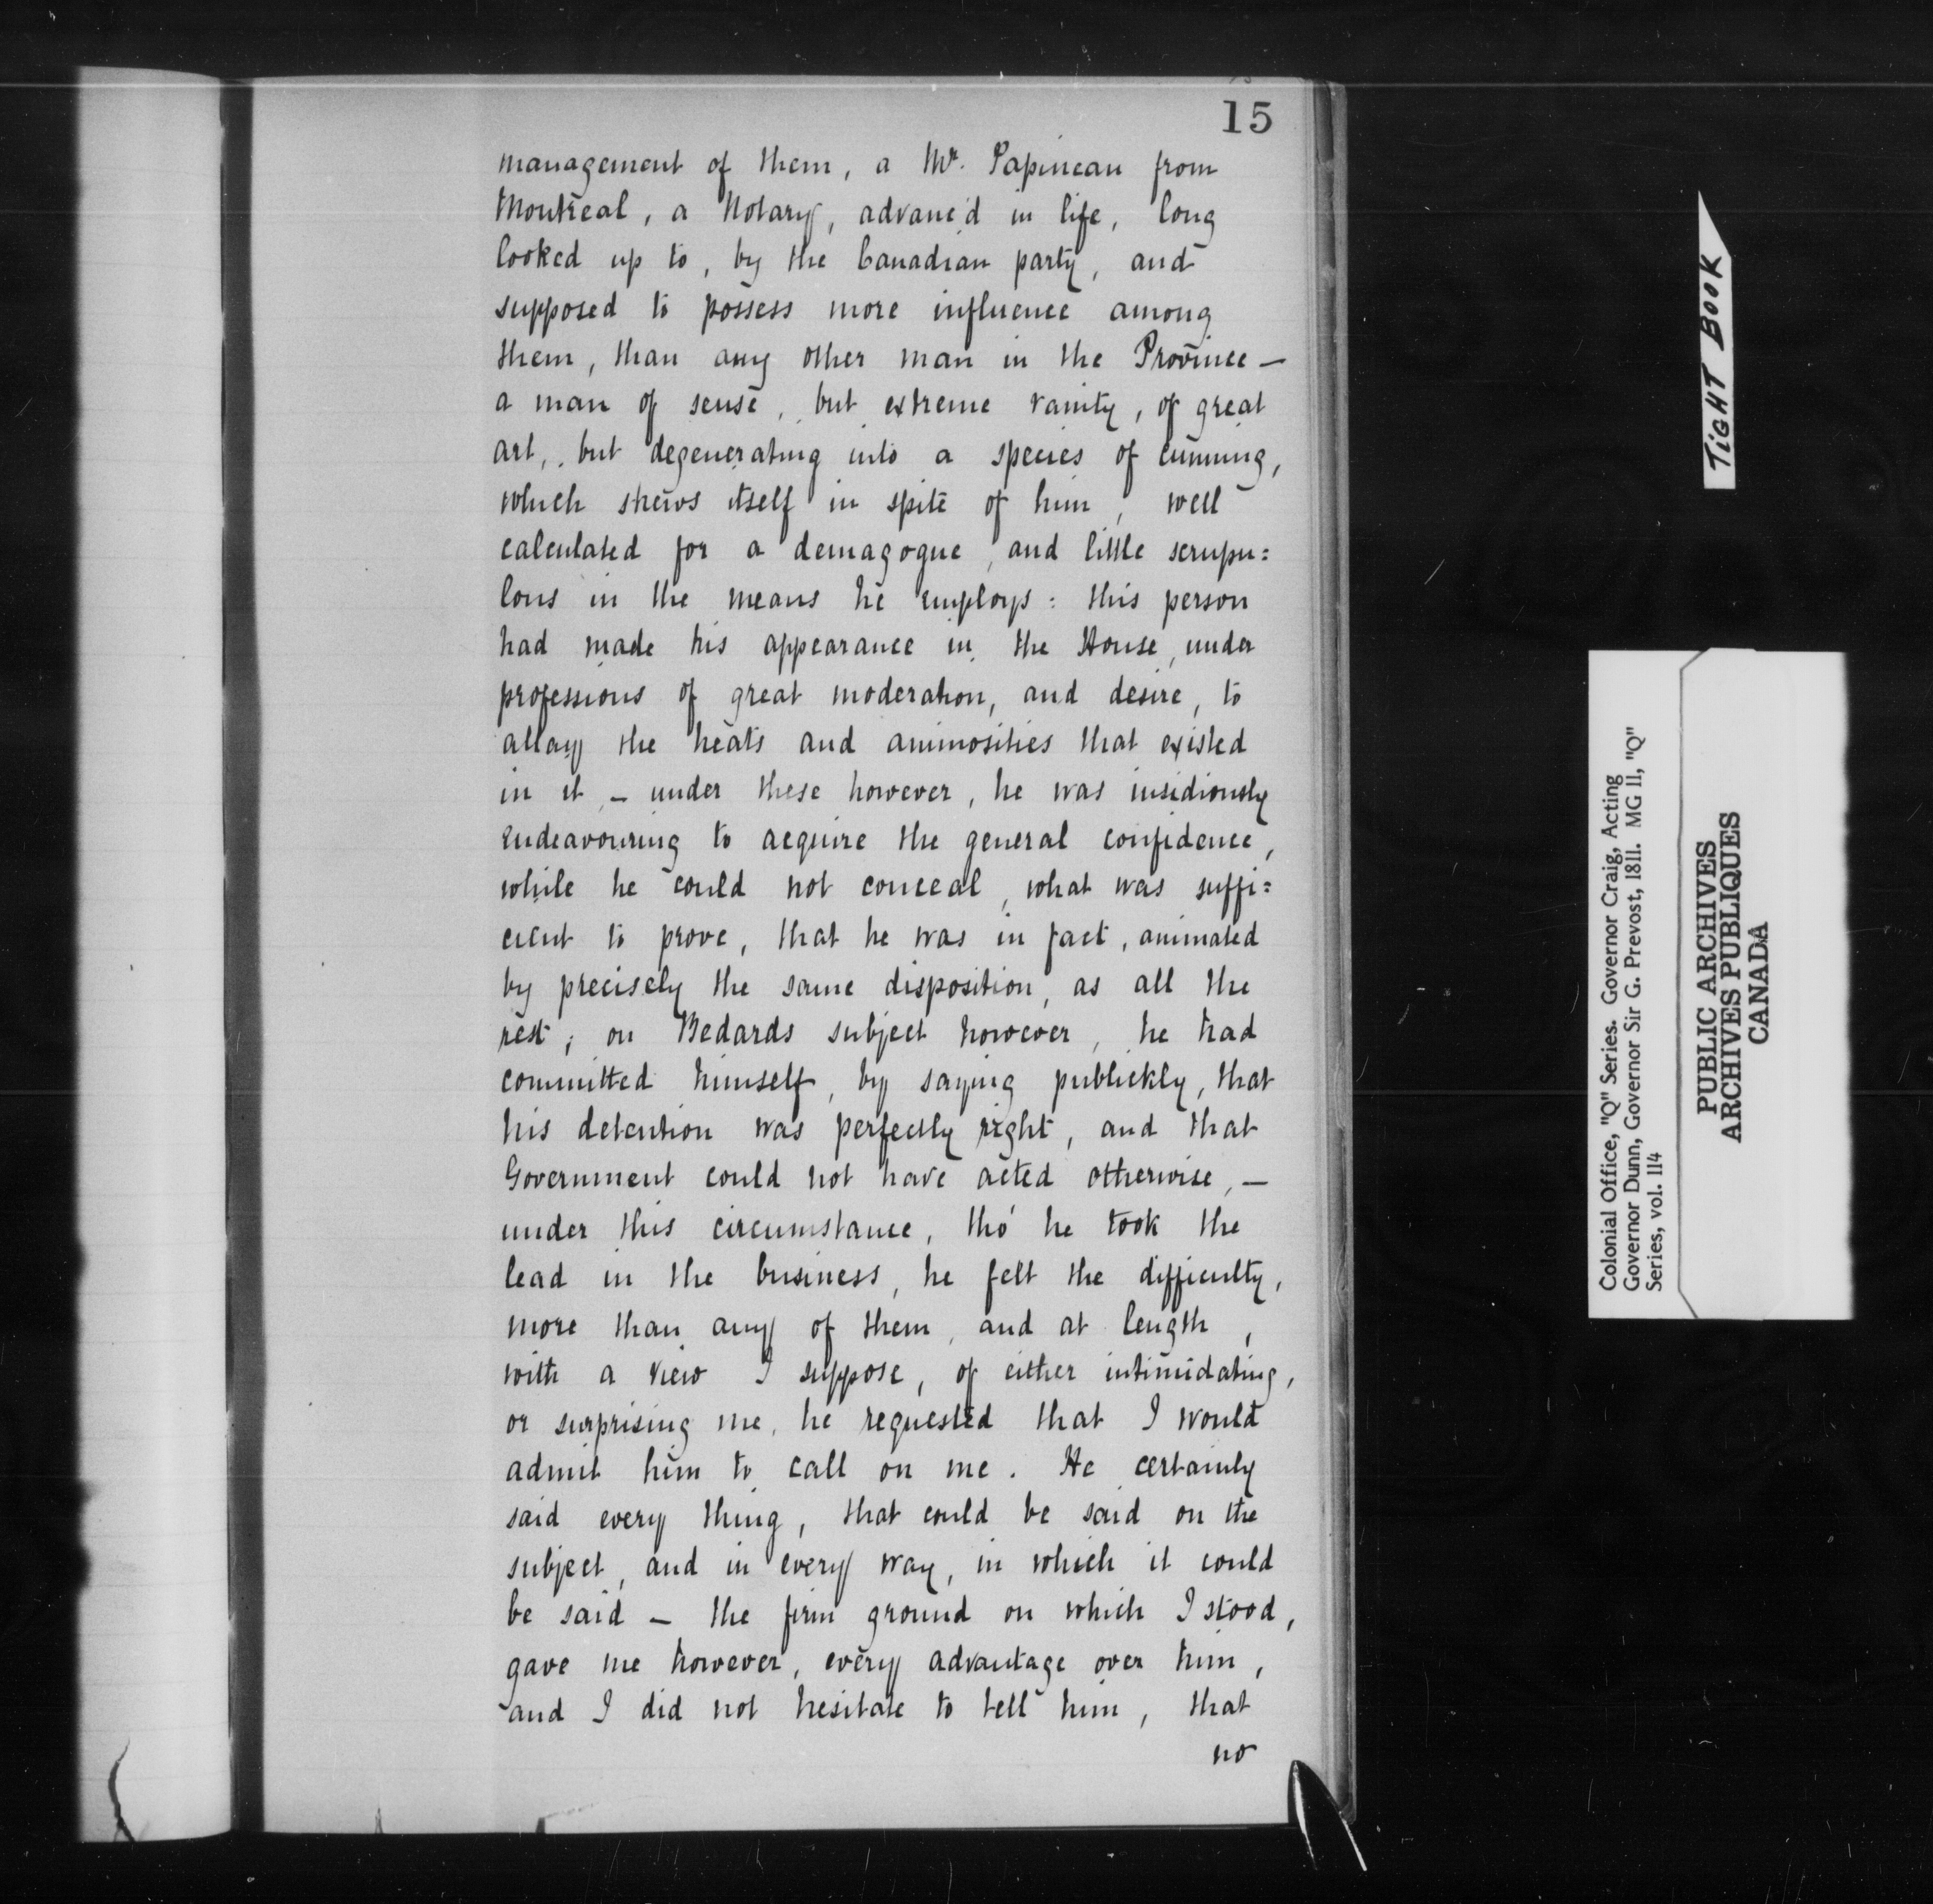 15
management of them, a Mr. Papineau from
Montreal, a Notary, advanc'd in life, long
looked up to, by the Canadian party, and
supposed to possess more influence among
them, than any other man in the Province —
a man of sense, but extreme vanity, of great
art, but degenerating into a species of cunning,
which shews itself in spite of him, well
calculated for a demagogue, and little scrupu=
lous in the means he employs: this person
had made his appearance in the House, under
professions of great moderation, and desire, to
allay the heats and animosities that existed
in it, — under these however, he was insidiously
endeavouring to acquire the general confidence,
while he could not conceal, what was suffi=
cient to prove, that he was in fact, animated
by precisely the same disposition, as all the
rest; on Bedards subject however, he had
committed himself, by saying publickly, that
his detention was perfectly right, and that
Government could not have acted otherwise, —
under this circumstance, tho' he took the
lead in the business, he felt the difficulty,
more than any of them, and at length,
with a view I suppose, of either intimidating,
or surprising me, he requested that I would
admit him to call on me. He certainly
said every thing, that could be said on the
subject, and in every way, in which it could
be said — the firm ground on which I stood,
gave me however, every advantage over him,
and I did not hesitate to tell him, that
no
TIGHT BOOK
Colonial Office, "Q" Series. Governor Craig, Acting
Governor Dunn, Governor Sir G. Prevost, 1811. MG 11, "Q"
Series, vol. 114
PUBLIC ARCHIVES
ARCHIVES PUBLIQUES
CANADA